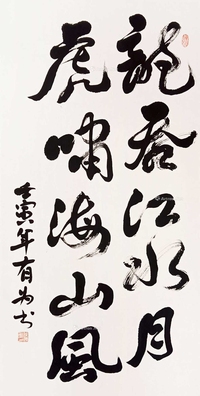 龍吞江水月
虎啸海山風
壬寅年有为书